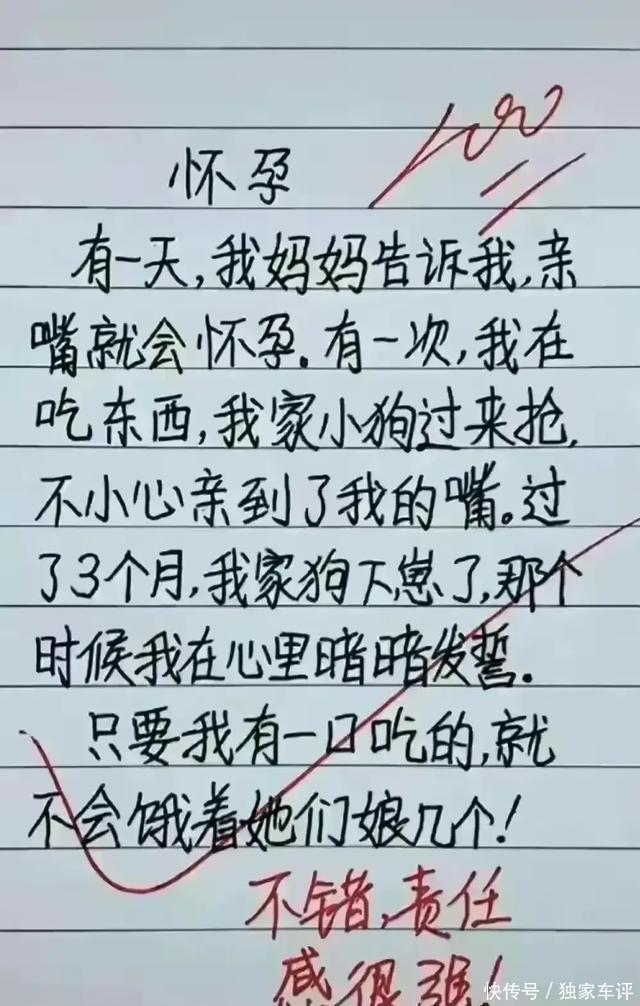 100
怀孕
有一天,我妈妈告诉我,亲
嘴就会怀孕.有一次,我在
吃东西,我家小狗过来抢,
不小心亲到了我的嘴。过
了3个月,我家狗下崽了,那个
时候我在心里暗暗发誓.
只要我有一口吃的,就
不会饿着她们娘几个!
不错,责任
感很强!
快传号/独家车评